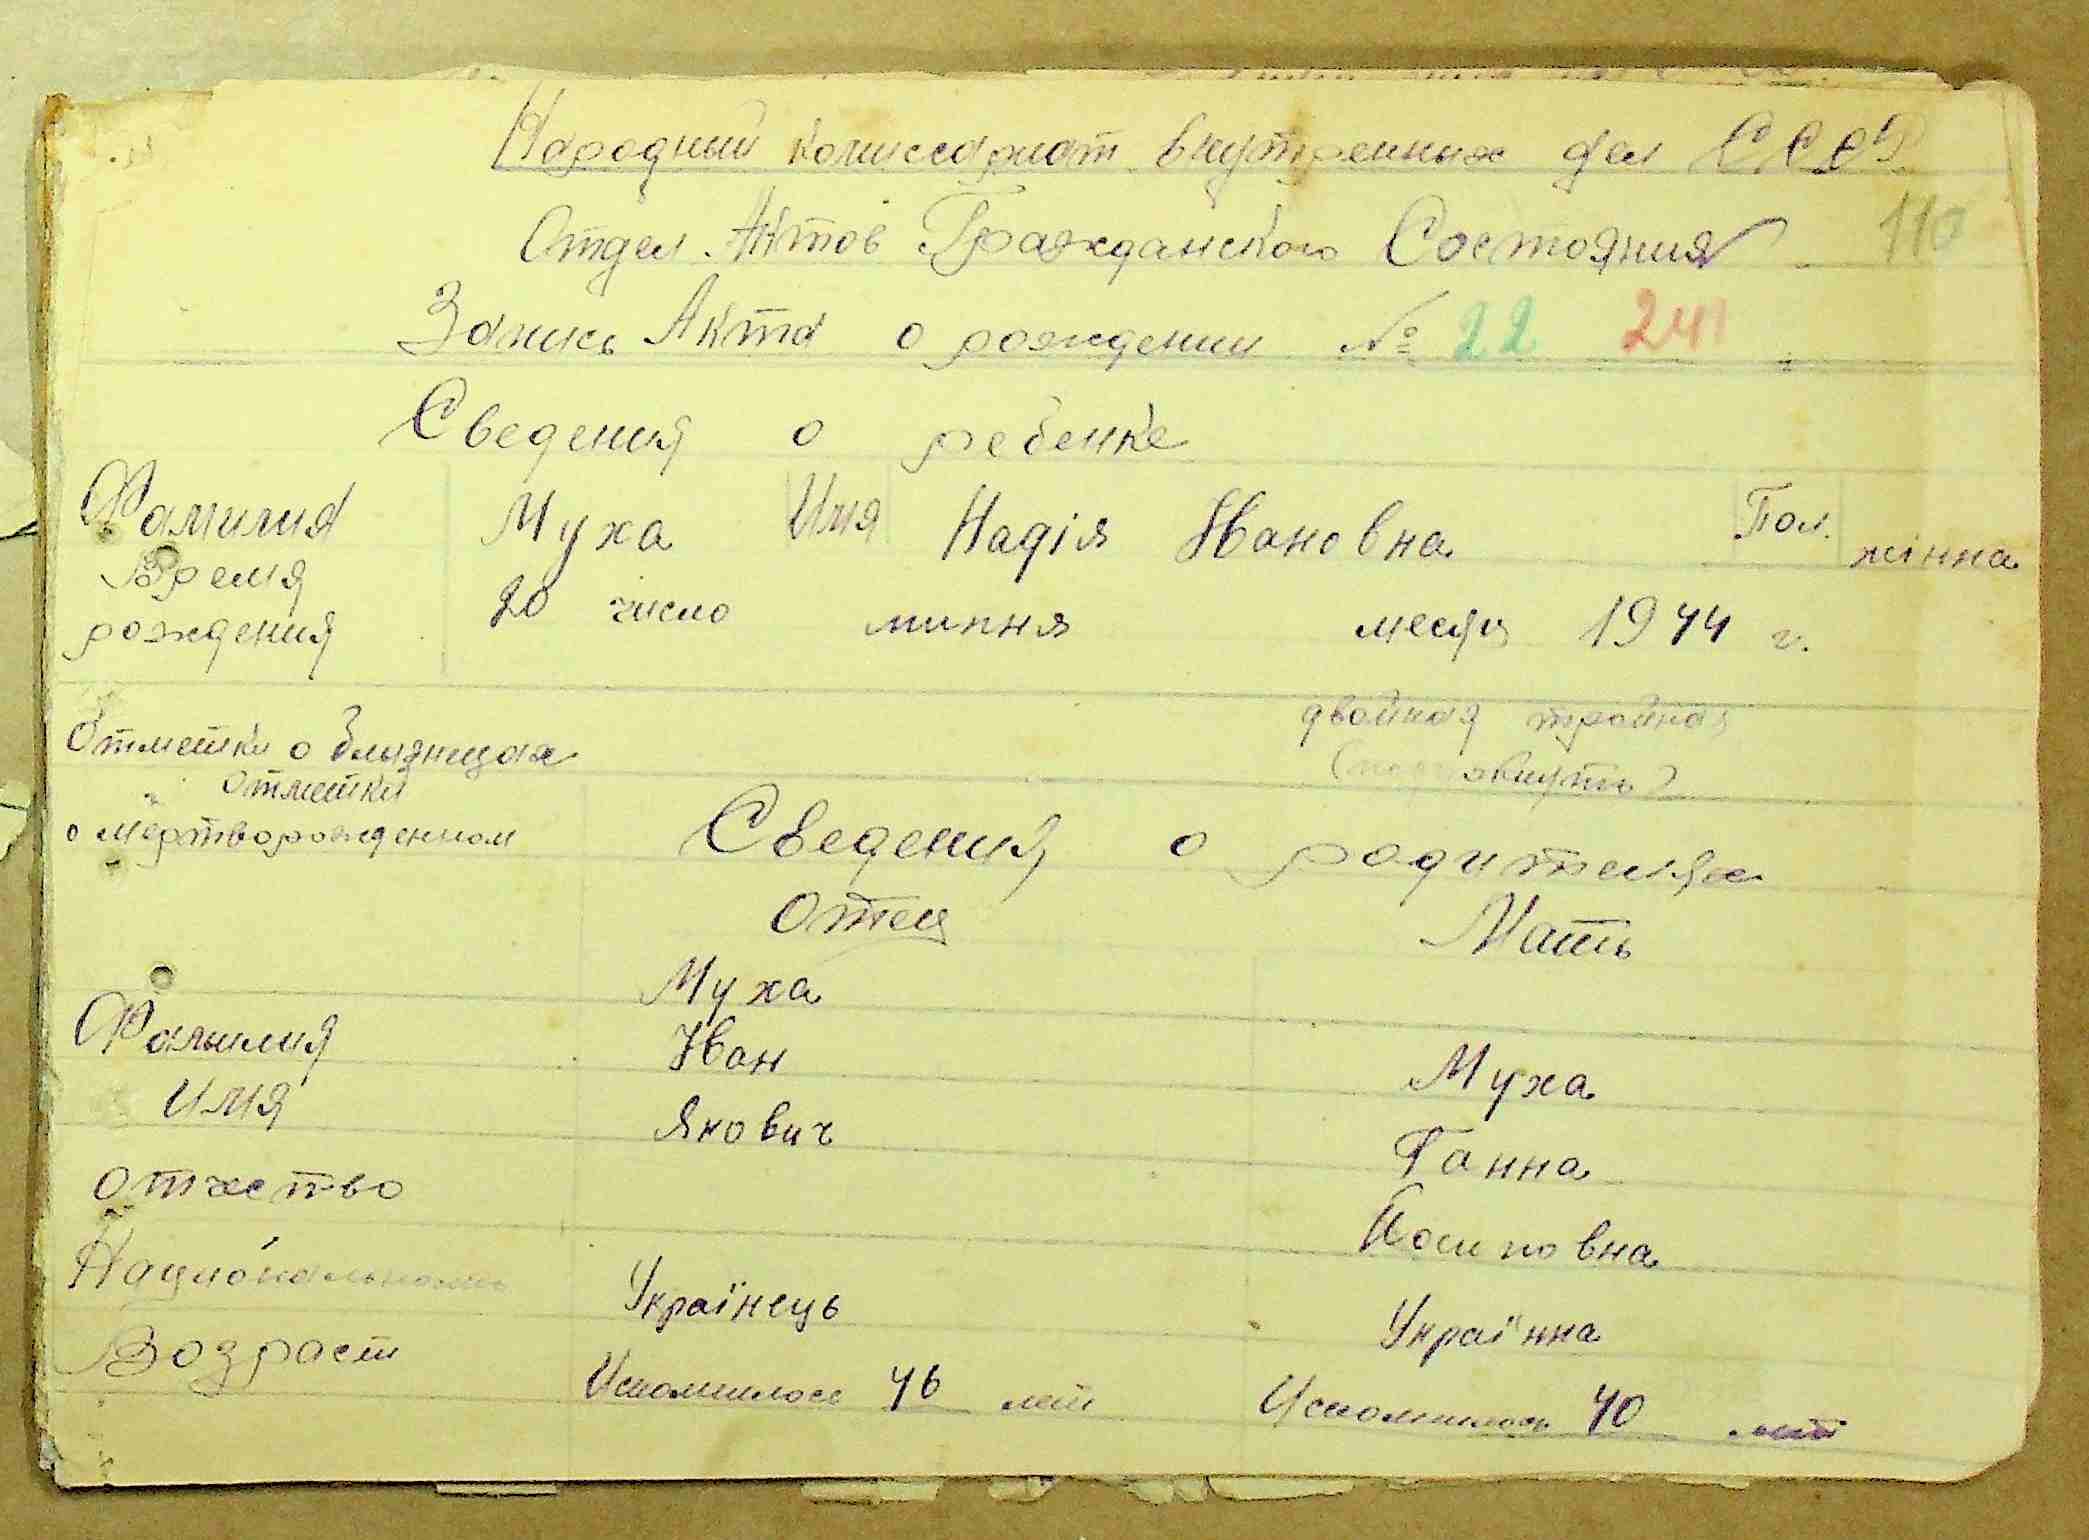 Народный комиссариат внутренних дел СССР
Отдел Актов Гражданского Состояния 110
Запись Акта о рождении № 22 241
Сведения о ребенке
Фамилия Муха Имя Надія Івановна Пол. жінна
Время рождения 20 число липня месяц 1944 г.
Отметки о близнецах двойная тройная
Отметки
о мертворожденном
Сведения о родителях
Отец Мать
Фамилия Муха Муха
Имя Іван Ганна
Отчество Якович Йосиповна
Национальность Українець Українка
Возраст Исполнилось 46 лет Исполнилось 40 лет